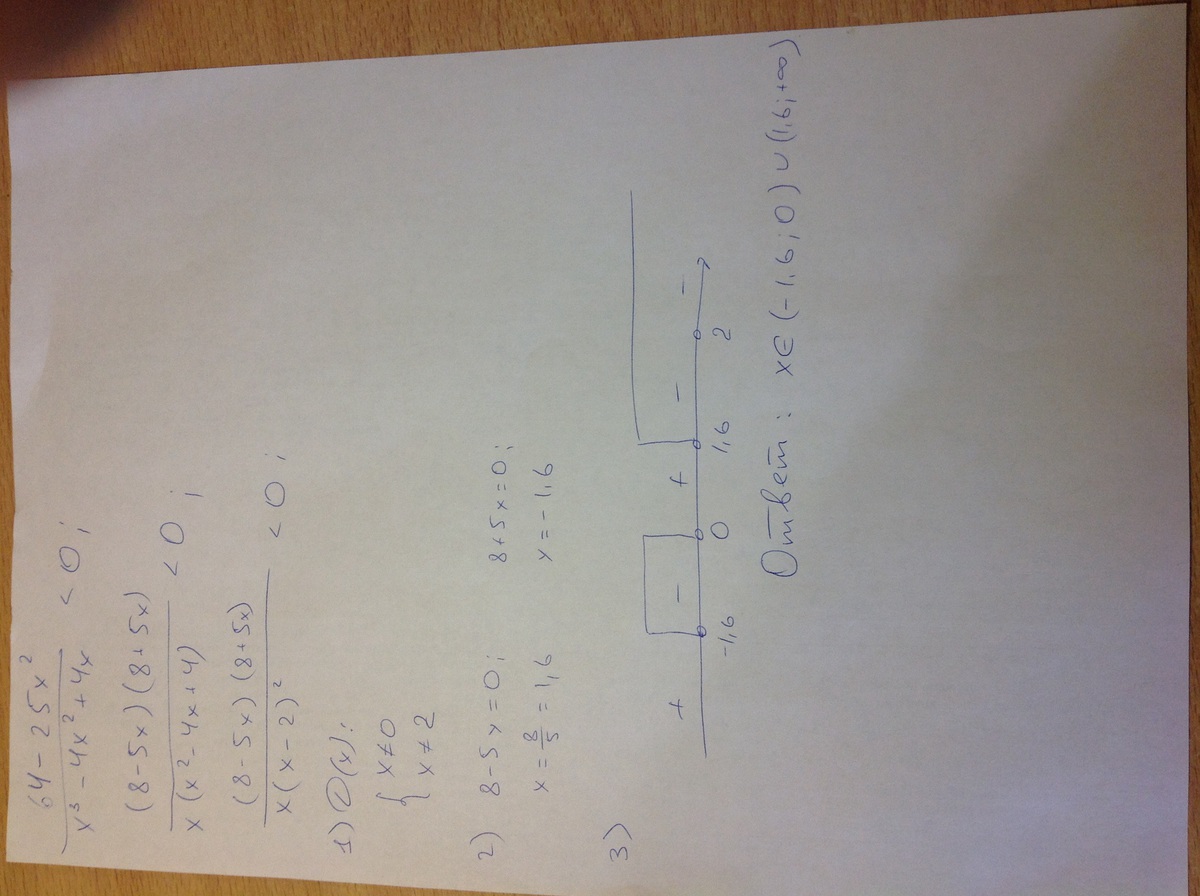 64 - 25x² / x³ - 4x² + 4x < 0 ;
(8 - 5x)(8 + 5x) / x(x² - 4x + 4) < 0 ;
(8 - 5x)(8 + 5x) / x(x - 2)² < 0 ;
1) D(x):
{ x ≠ 0
x ≠ 2
2) 8 - 5x = 0; 8 + 5x = 0;
x = 8/5 = 1,6 x = -1,6
3)
+ - + - -
-1,6 0 1,6 2
Ответ: x ∈ (-1,6 ; 0) ∪ (1,6 ; +∞)